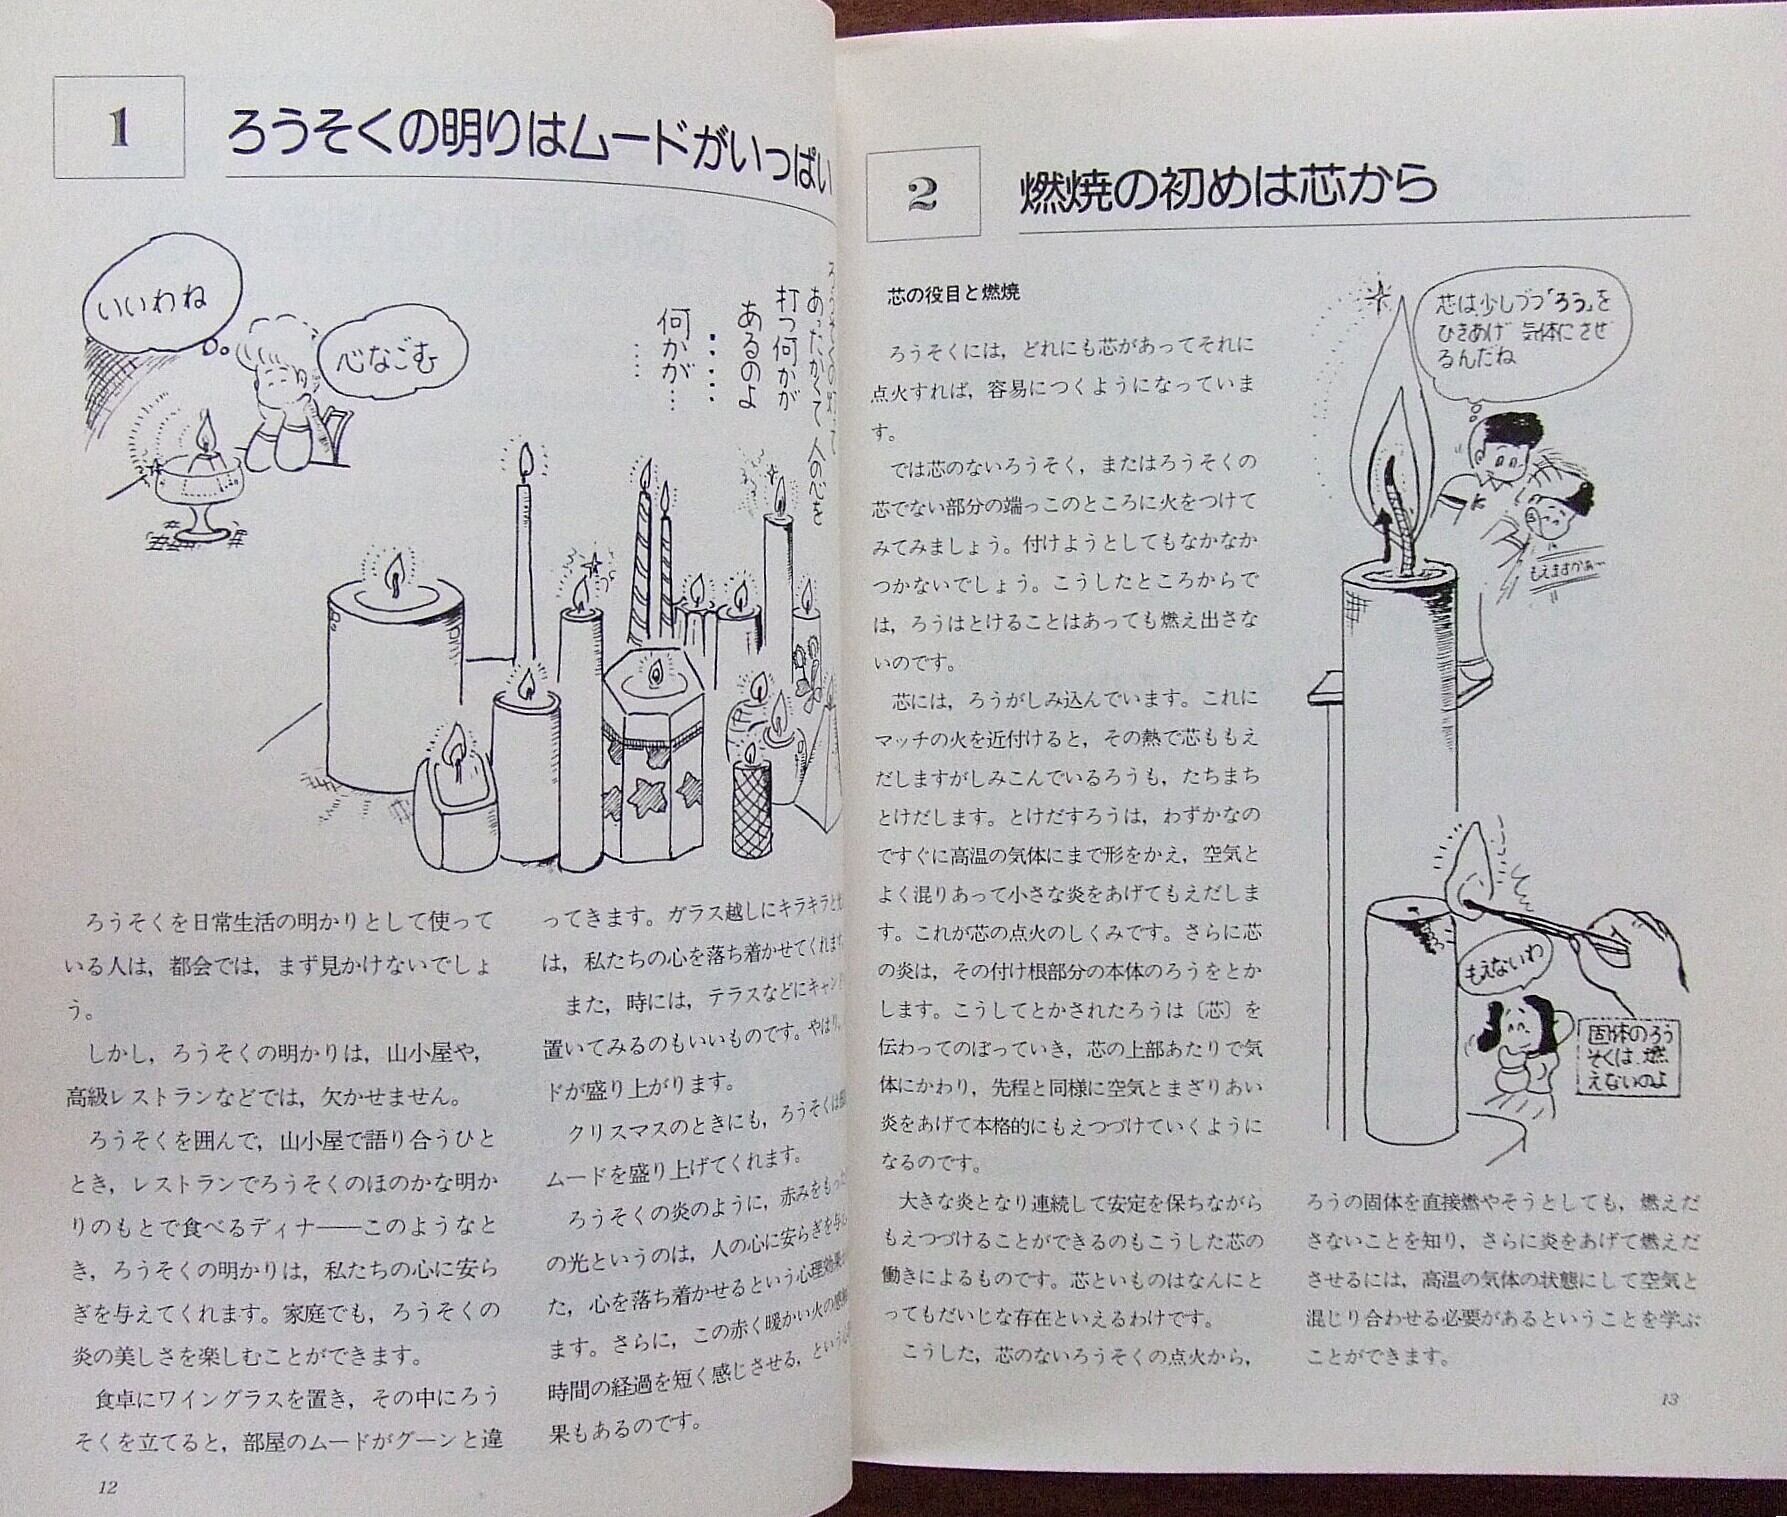 1
ろうそくの明りはムードがいっぱい
いいわね
心なごむ
あったかくて 人の心を
打つ何かが
あるのよ
・・・・・
何かが…
…
ろうそくを日常生活の明かりとして使って
いる人は，都会では，まず見かけないでしょ
う。
しかし，ろうそくの明かりは，山小屋や，
高級レストランなどでは，欠かせません。
ろうそくを囲んで，山小屋で語り合うひと
とき，レストランでろうそくのほのかな明か
りのもとで食べるディナ——このようなと
き，ろうそくの明かりは，私たちの心に安ら
ぎを与えてくれます。家庭でも，ろうそくの
炎の美しさを楽しむことができます。
食卓にワイングラスを置き，その中にろう
そくを立てると，部屋のムードがグーンと違
ってきます。ガラス越しにキラキラと
は，私たちの心を落ち着かせてくれます
また，時には，テラスなどにキャン
置いてみるのもいいものです。やはり，
ドが盛り上がります。
クリスマスのときにも，ろうそくは
ムードを盛り上げてくれます。
ろうそくの炎のように，赤みをもった
の光というのは，人の心に安らぎを与え
た，心を落ち着かせるという心理効果
ます。さらに，この赤く暖かい火の
時間の経過を短く感じさせる，という
果もあるのです。
12
2
燃焼の初めは芯から
芯の役目と燃焼
ろうそくには，どれにも芯があってそれに
点火すれば，容易につくようになっていま
す。
では芯のないろうそく，またはろうそくの
芯でない部分の端っこのところに火をつけて
みてみましょう。付けようとしてもなかなか
つかないでしょう。こうしたところからで
は，ろうはとけることはあっても燃え出さな
いのです。
芯には，ろうがしみ込んでいます。これに
マッチの火を近付けると，その熱で芯ももえ
だしますがしみこんでいるろうも，たちまち
とけだします。とけだすろうは，わずかなの
ですぐに高温の気体にまで形をかえ，空気と
よく混りあって小さな炎をあげてもえだしま
す。これが芯の点火のしくみです。さらに芯
の炎は，その付け根部分の本体のろうをとか
します。こうしてとかされたろうは〔芯〕を
伝わってのぼっていき，芯の上部あたりで気
体にかわり，先程と同様に空気とまざりあい
炎をあげて本格的にもえつづけていくように
なるのです。
大きな炎となり連続して安定を保ちながら
もえつづけることができるのもこうした芯の
働きによるものです。芯といものはなんにと
ってもだいじな存在といえるわけです。
こうした，芯のないろうそくの点火から，
芯は少しづつ「ろう」を
ひきあげ 気体にさせ
るんだね
もえますかぁ〜
もえないわ
固体のろう
そくは 燃
えないのよ
ろうの固体を直接燃やそうとしても，燃えだ
さないことを知り，さらに炎をあげて燃えだ
させるには，高温の気体の状態にして空気と
混じり合わせる必要があるということを学ぶ
ことができます。
13